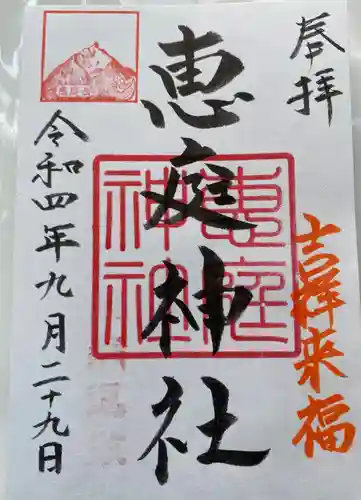 奉拝
吉祥来福
恵庭神社
恵庭神社
令和四年九月二十九日